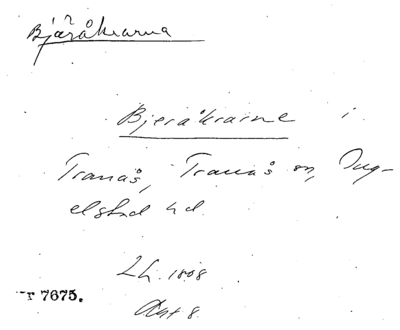 Bjäråkrarna
Bjeråkrarne i
Tranås, Tranås sn, Ing-
elstad hd.
Lh. 1808
Akt 8.
r 7675.